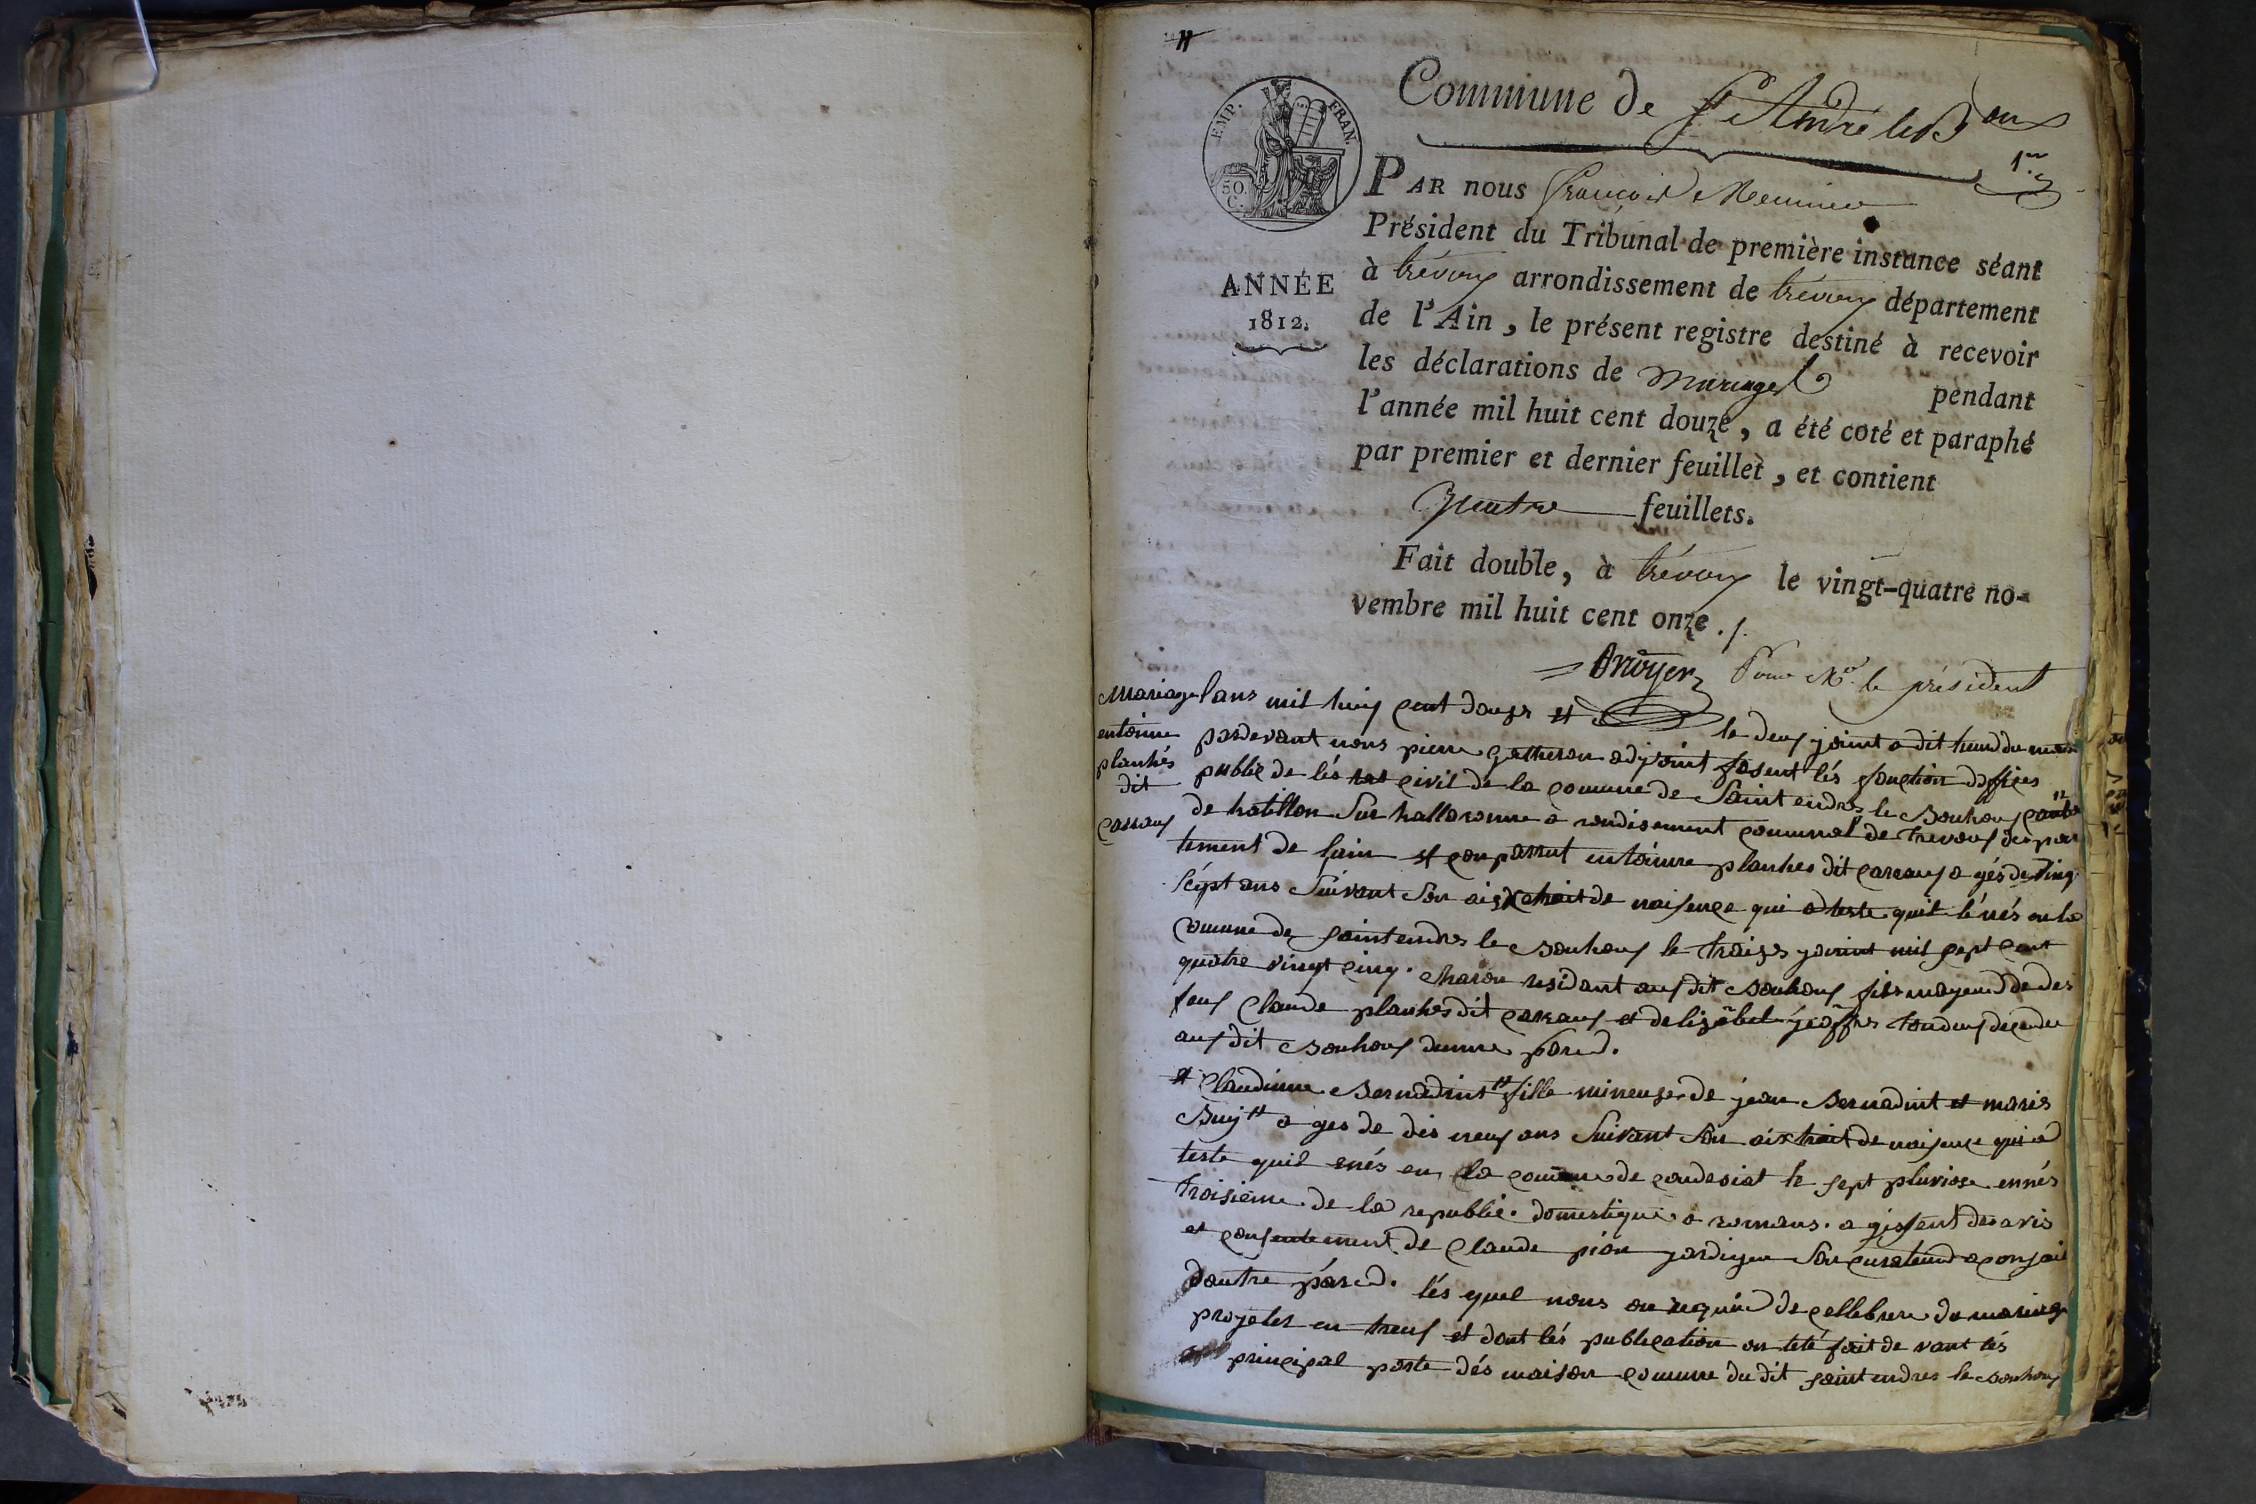 Commune de St André le Boux
1er
EMP. FRAN.
50. C.
ANNÉE
1812.
PAR nous François Meunier
Président du Tribunal de première instance séant
à trévoux arrondissement de trévoux département
de l'Ain, le présent registre destiné à recevoir
les déclarations de mariages pendant
l'année mil huit cent douze, a été coté et paraphé
par premier et dernier feuillet, et contient
quatre feuillets.
Fait double, à trévoux le vingt-quatre no-
vembre mil huit cent onze ./.
Pour Mr le président
Mariage
entoinne
planhés
dit
carraux
lans mil huis cent douze et le deux joint a dit heurd du matin
pardevant nous pierre gatheron adjoint fasent lés fonction doffices
publie de lés tat civil de la comune de Saint endrés le Bouhoux canton
de hatillon Sur hallaronne a rondisement comunal de trevoux depar
tement de lain et conparrut entoinne planhes dit carraux a gés de ving
sept ans Suivant Son aixtrait de naisence qui a teste quil lénés en la
comune de saint endres le Bouhoux le traizes joint mil sept cent
quatre vingt cinq. Charon residant aux dit Bouhoux fils mageurd de des
feux Claude planhes dit carraux et de lizabet geoffres tou deux décendu
aux dit Bouhoux dunne pard.
et Claudinne Bernadint fille mineuze de jean Bernadint et maris
Buy a ges de dis neuf ans Suivant Son aixtrait de naisence qui a
teste quil enés en la comune de condesiat le sept pluviose ennés
troisieme de la republie. domestique a romans. a gissent des avis
et consentement de Claude pion jardigne Son curateurd a conjoit
dautre pard. lés quel nous on requie de cellebrere du mariage
projeter en treux et dont lés publication on tété fait de vant lés
principal porte dés maison comune du dit saint endres le Bouhoux